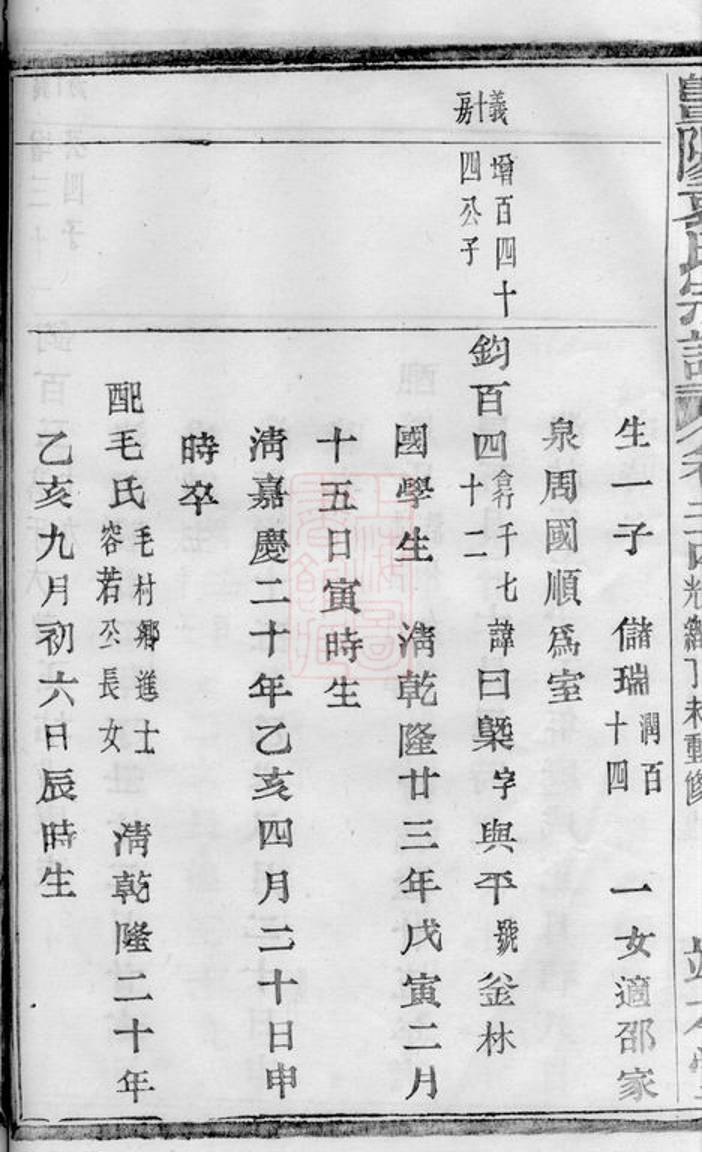 陽袁氏宗譜 卷之四 光緒丁未重修
生一子 儲瑞潤百十四 一女適邵家
泉周國順為室
義十房
增百四十四公子
鈞百四十二 行千七 諱曰槼 字與平 號釡林
國學生 淸乾隆廿三年戊寅二月
十五日寅時生
淸嘉慶二十年乙亥四月二十日申
時卒
配毛氏 毛村鄉進士容若公長女 淸乾隆二十年
乙亥九月初六日辰時生